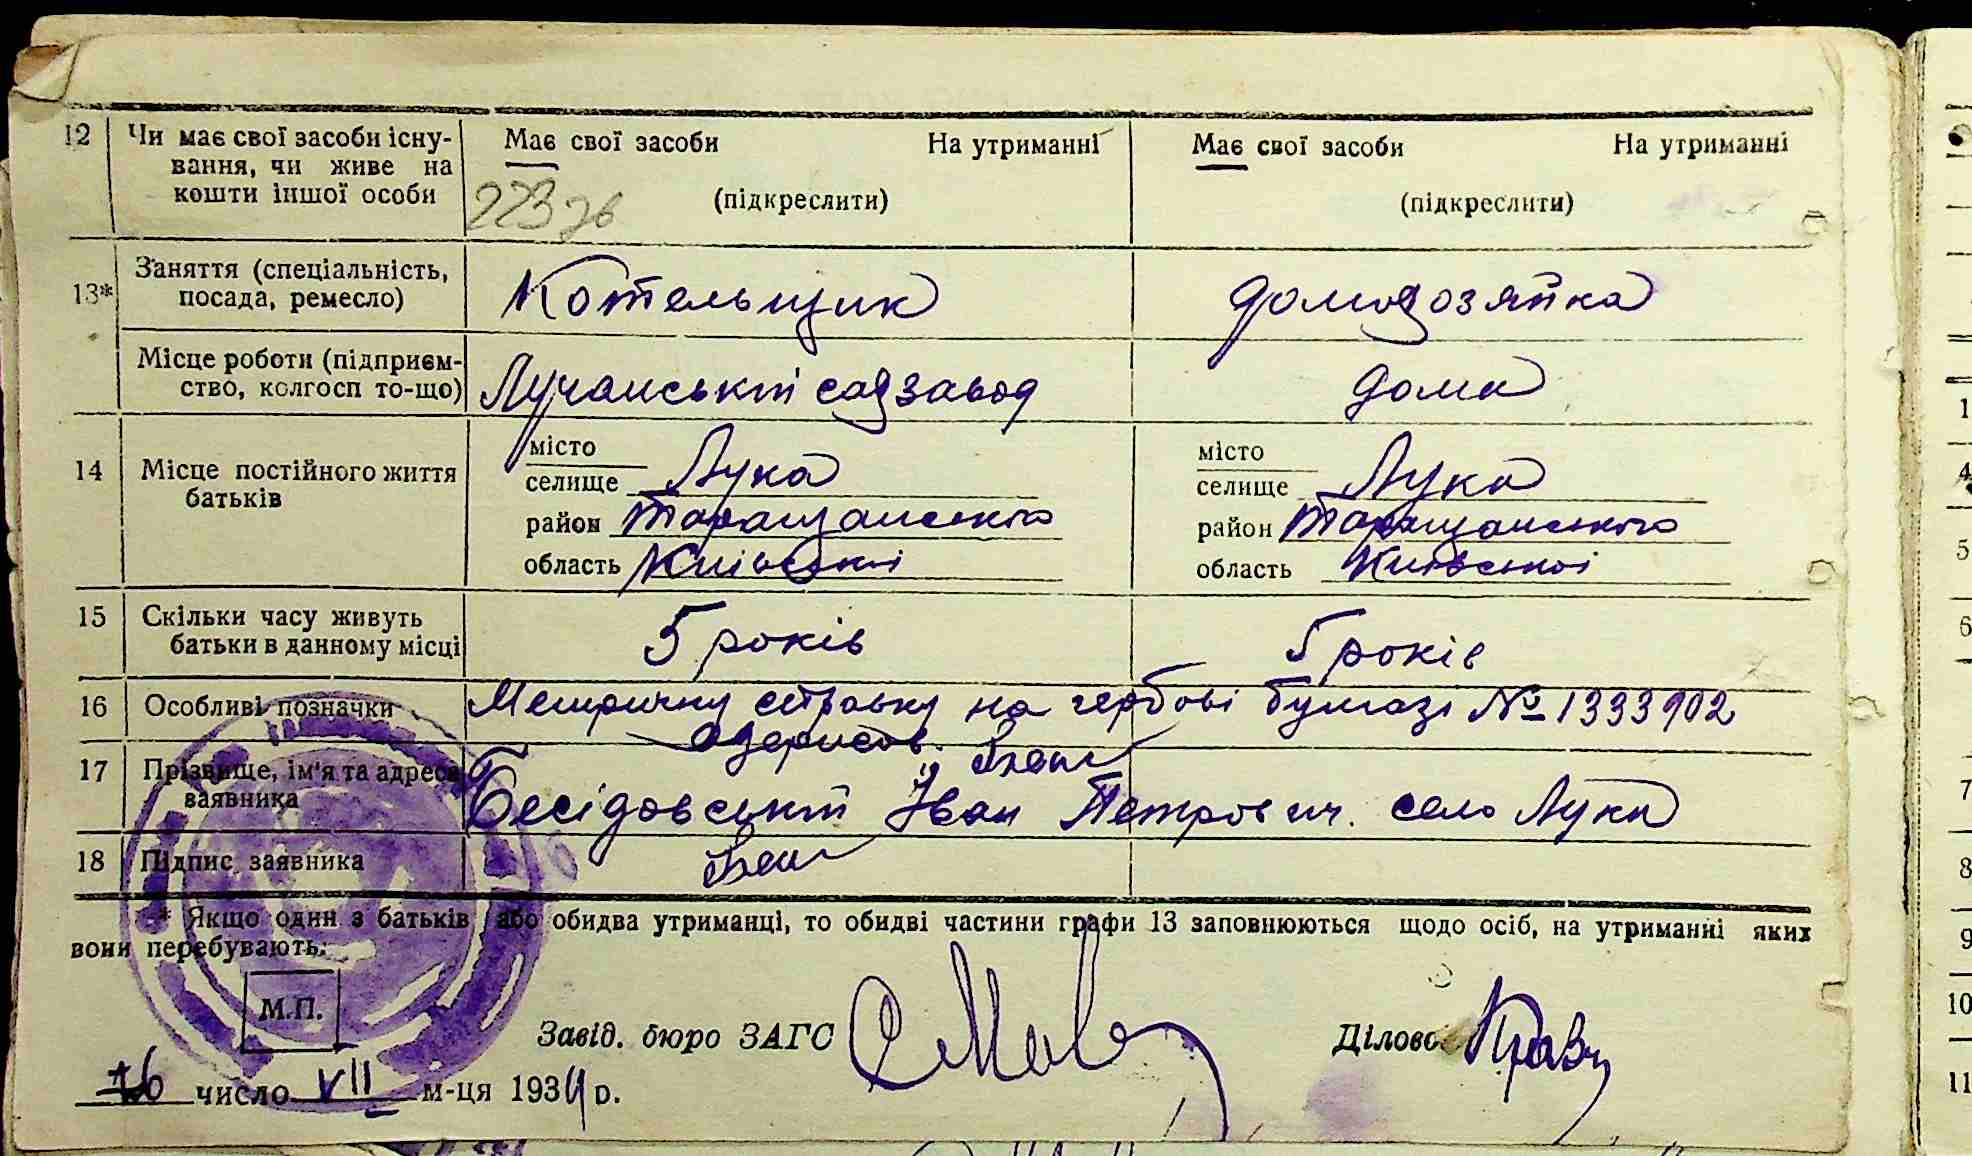 12 Чи має свої засоби існу- Має свої засоби На утриманні Має свої засоби На утриманні
вання, чи живе на
кошти іншої особи 223 (підкреслити) (підкреслити)
13* Заняття (спеціальність,
посада, ремесло) Котельщик домогозяйка
Місце роботи (підприєм-
ство, колгосп то-що) Лучанський сад завод дома
14 Місце постійного життя місто місто
батьків селище Лука селище Лука
район Таращанського район Таращанського
область Київської область Київської
15 Скільки часу живуть
батьки в данному місці 5 років 5 років
16 Особливі позначки Метричну справку на гербові бумазі № 1333902
одержав.
17 Прізвище, ім'я та адреса
заявника Бесідовський Іван Петрович. село Лука
18 Підпис заявника
* Якщо один з батьків або обидва утриманці, то обидві частини графи 13 заповнюються щодо осіб, на утриманні яких
вони перебувають.
М.П.
Завід. бюро ЗАГС Ділово
16 число VII м-ця 1934 р.
1
4
5
6
7
8
9
10
11